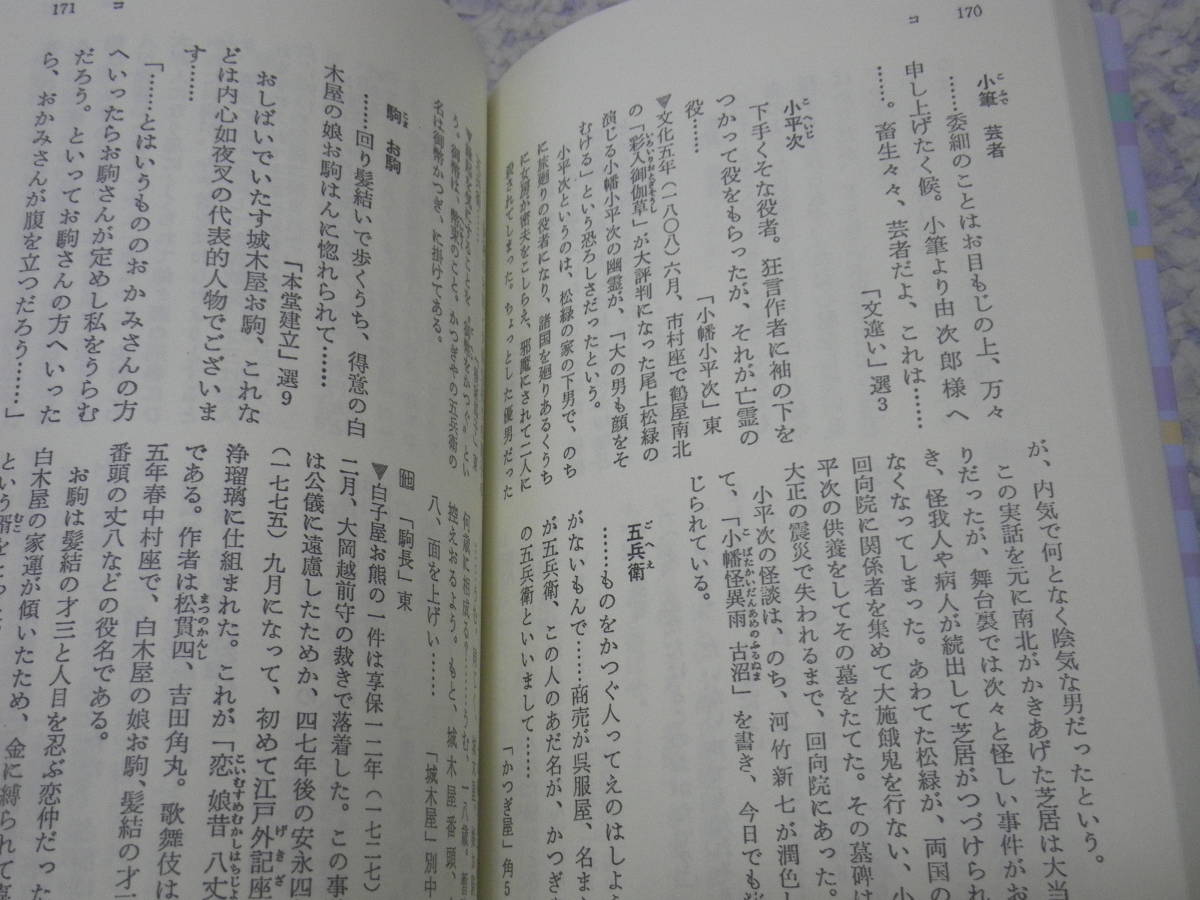 170
コ
小筆　芸者
……委細のことはお目もじの上、万々
申し上げたく候。小筆より由次郎様へ
……。畜生々々、芸者だよ、これは……
「文違い」選3
小平次
下手くそな役者。狂言作者に袖の下を
つかって役をもらったが、それが亡霊の
役……
「小幡小平次」東
▼文化五年（一八〇八）六月、市村座で鶴屋南北
の「彩入御伽草」が大評判になった尾上松緑の
演じる小幡小平次の幽霊が、「大の男も顔をそ
むける」という恐ろしさだったという。
小平次というのは、松緑の家の下男で、のち
に旅廻りの役者になり、諸国を廻りあるくうち
に女房が密夫をこしらえ、邪魔にされて二人に
殺されてしまった。ちょっとした優男だった
が、内気で何となく陰気な男だったという。
この実話を元に南北がかきあげた芝居は大当
りだったが、舞台裏では次々と怪しい事件がお
き、怪我人や病人が続出して芝居がつづけられ
なくなってしまった。あわてた松緑が、両国の
回向院に関係者を集めて大施餓鬼を行ない、小
平次の供養をしてその墓をたてた。その墓碑は
大正の震災で失われるまで、回向院にあった。
小平次の怪談は、のち、河竹新七が潤色し
て、「小幡怪異雨古沼」を書き、今日でも
じられている。
五兵衛
……ものをかつぐ人ってえのはしよう
がないもんで……商売が呉服屋、名ま
が五兵衛、この人のあだ名が、かつぎ
の五兵衛といいまして……
「かつぎ屋」角5
171
コ
▼縁起を気にすることを"御幣をかつぐ"とい
う。御幣は、幣束のこと。かつぎやの五兵衛の
名は御幣かつぎ、に掛けてある。
駒　お駒
……回り髪結いで歩くうち、得意の白
木屋の娘お駒はんに惚れられて……
「本堂建立」選9
おしばいでいたす城木屋お駒、これな
どは内心如夜叉の代表的人物でございま
す……
「……とはいうもののおかみさんの方
へいったらお駒さんが定めし私をうらむ
だろう。といってお駒さんの方へいった
ら、おかみさんが腹を立つだろう……」
控えおるよう。もと、城木屋番頭、
八、面を上げい……
「城木屋」別中
他「駒長」東
▼白子屋お熊の一件は享保一二年（一七二七）
二月、大岡越前守の裁きで落着した。この事
は公儀に遠慮したためか、四七年後の安永四
（一七七五）九月になって、初めて江戸外記座
浄瑠璃に仕組まれた。これが「恋娘昔八丈
である。作者は松貫四、吉田角丸。歌舞伎は
五年春中村座で、白木屋の娘お駒、髪結の才
番頭の丈八などの役名である。
お駒は髪結の才三と人目を忍ぶ恋仲だった
白木屋の家運が傾いたため、金に縛られて
という婿を